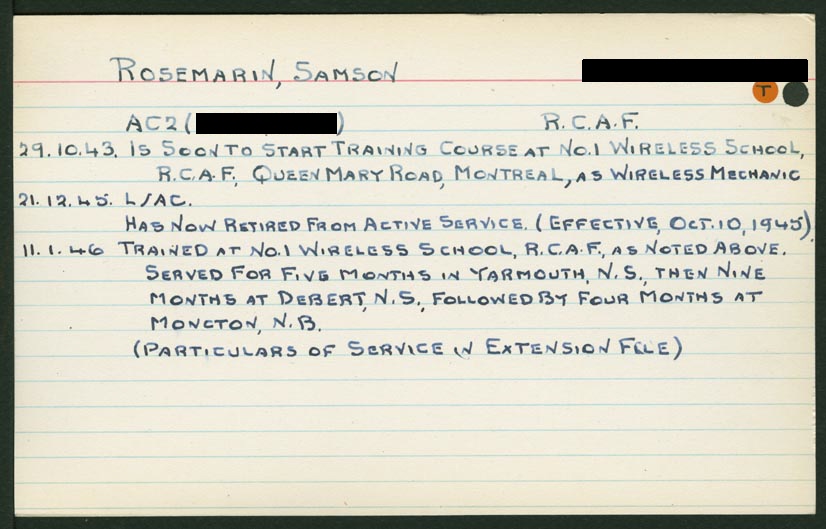 ROSEMARIN, SAMSON
T
AC2 ( ) R.C.A.F.
29.10.43. IS SOON TO START TRAINING COURSE AT NO.1 WIRELESS SCHOOL,
R.C.A.F., QUEEN MARY ROAD, MONTREAL, AS WIRELESS MECHANIC
21.12.45. L/AC.
HAS NOW RETIRED FROM ACTIVE SERVICE. (EFFECTIVE, OCT. 10, 1945).
11.1.46 TRAINED AT NO.1 WIRELESS SCHOOL, R.C.A.F., AS NOTED ABOVE.
SERVED FOR FIVE MONTHS IN YARMOUTH, N.S., THEN NINE
MONTHS AT DEBERT, N.S., FOLLOWED BY FOUR MONTHS AT
MONCTON, N.B.
(PARTICULARS OF SERVICE IN EXTENSION FILE)